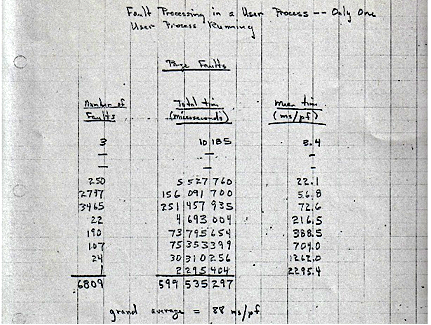 Fault Processing in a User Process -- Only One
User Process Running
Page Faults
Number of Total time mean time
Faults (microseconds) (ms/pf)
3 10 185 3.4
— — —
— — —
250 5 527 760 22.1
2747 156 091 700 56.8
3465 251 457 935 72.6
22 4 693 004 216.5
190 73 795 654 388.5
107 75 353 399 704.0
24 30 310 256 1262.0
1 2 295 404 2295.4
6809 599 535 297
grand average = 88 ms/pf